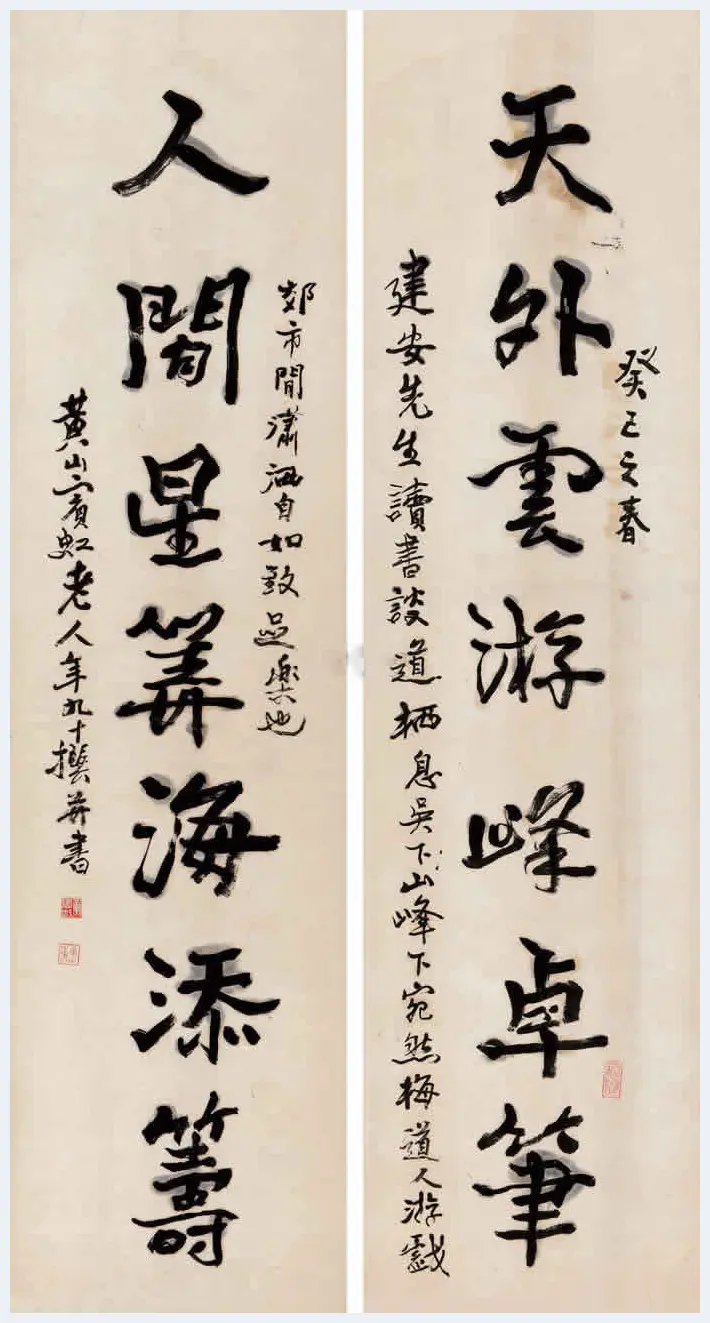 癸巳之春
天外雲游峰卓筆
建安先生讀書談道栖息吳下山峰下宛然梅道人游戲
人間星算海添籌
郊市間瀟洒自如致足樂也
黄山賓虹老人年九十撰并書